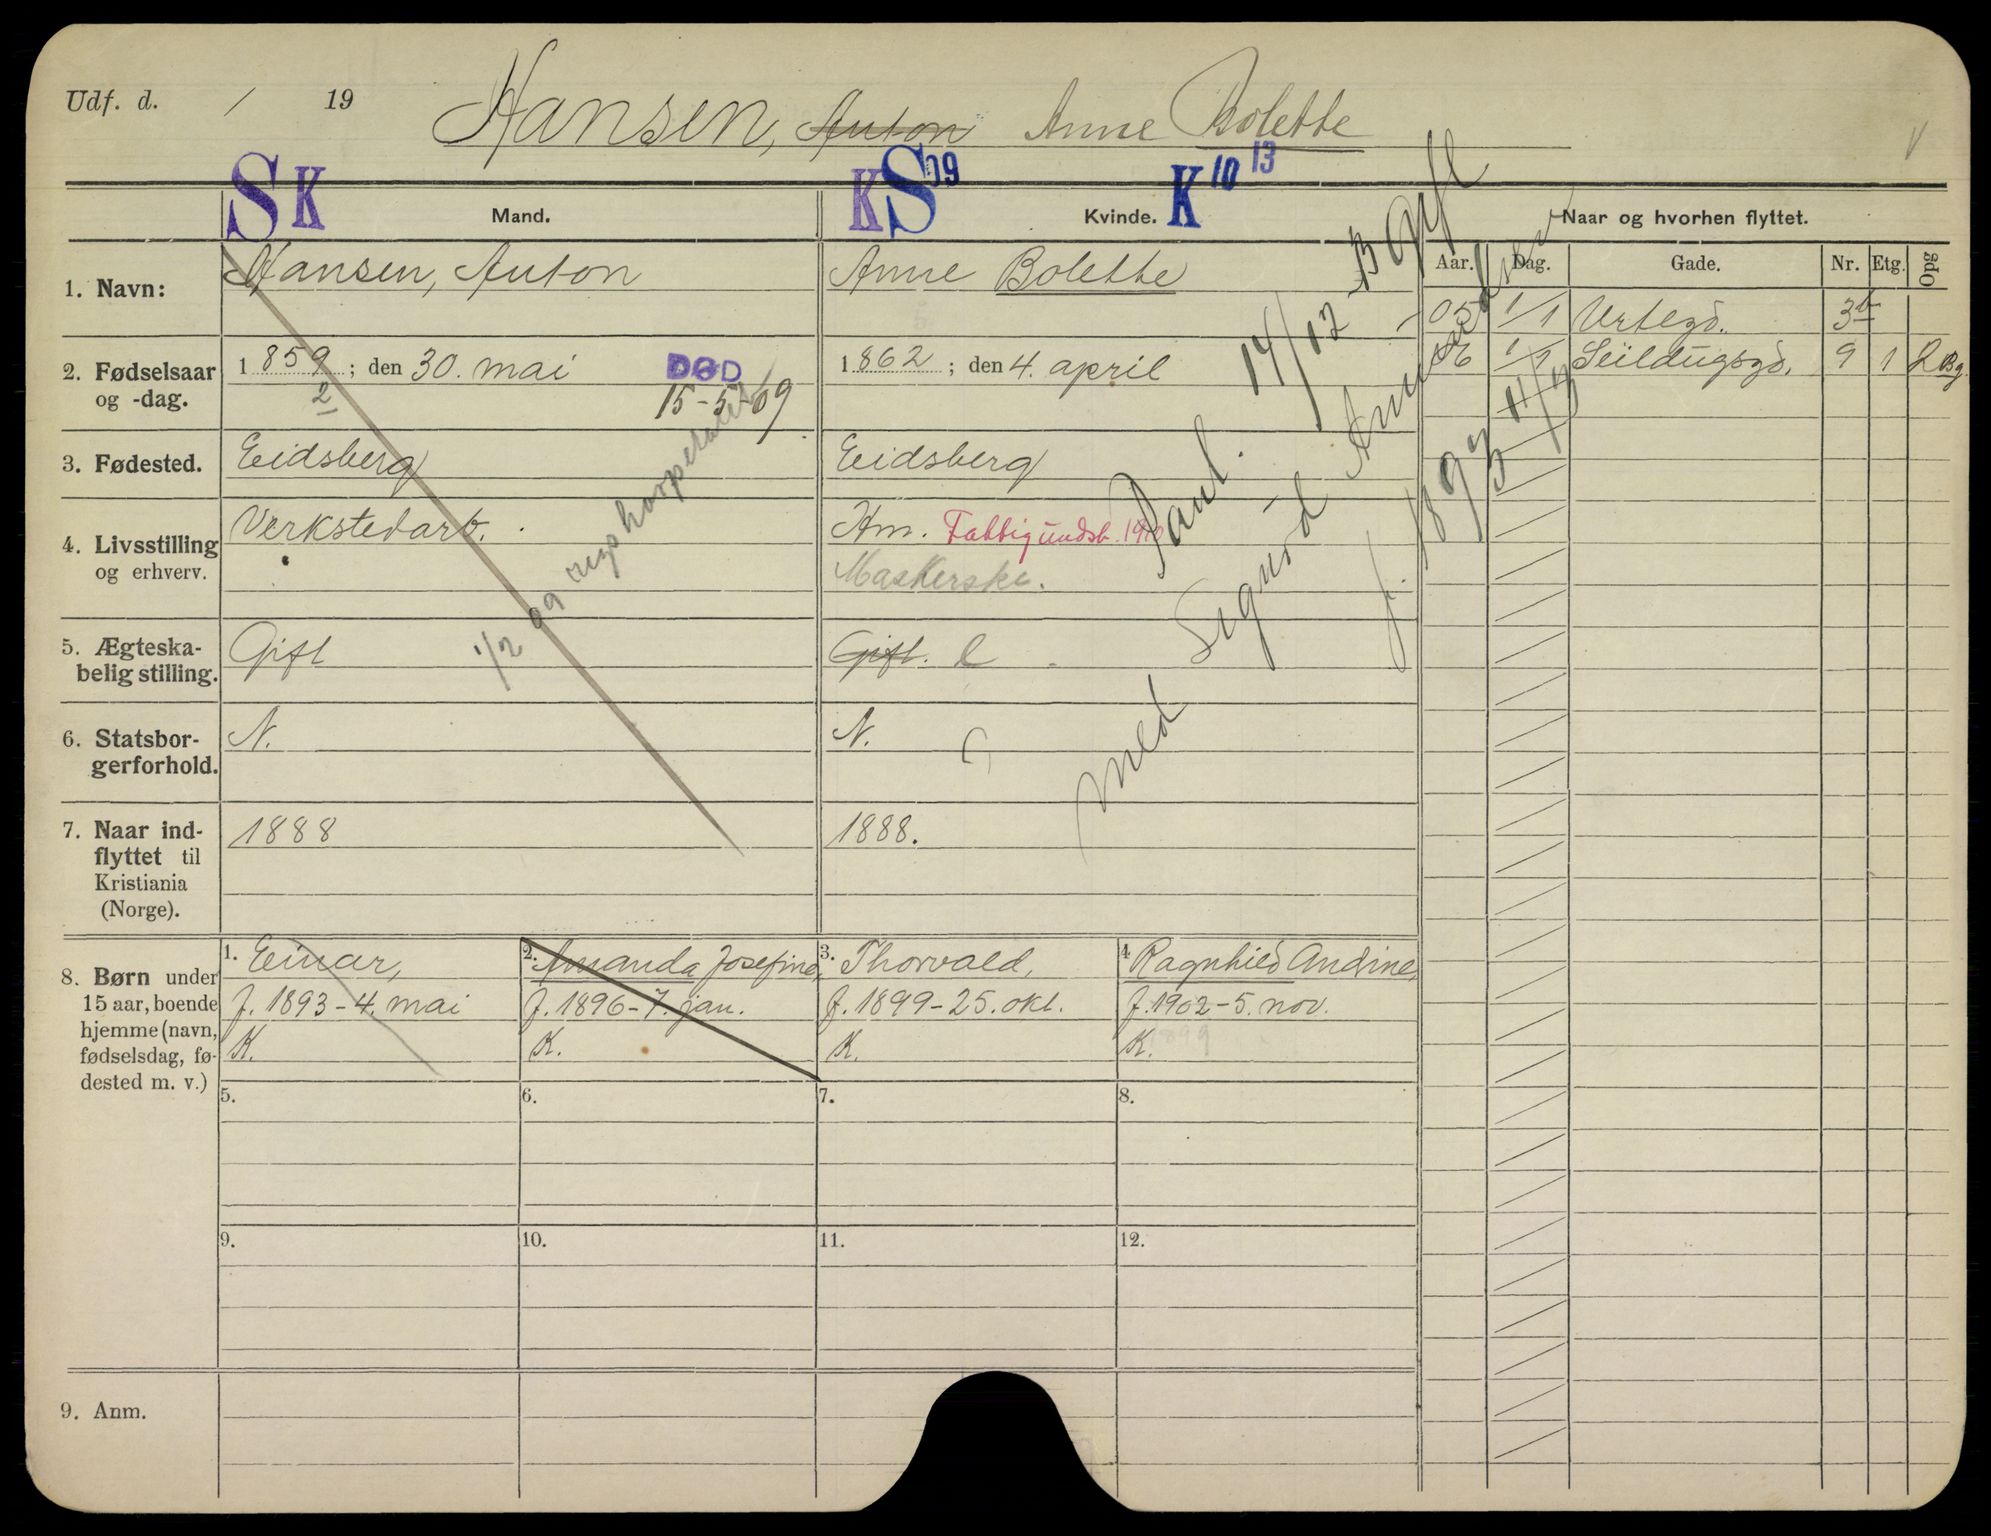 Udf. d. / 19 Hansen, Anton Anne Bolette
S K Mand. K S 09 Kvinde. K 10 13 Naar og hvorhen flyttet.
Aar. Dag. Gade. Nr. Etg. Opg
1. Navn: Hansen, Anton Anne Bolette
05 1/1 Urtegd. 3b
06 1/1 Seildugsgd. 9 1 2 Bg.
2. Fødselsaar og -dag. 1859; den 30. mai DØD 1862; den 4. april
2 15-5-09
3. Fødested. Eidsberg Eidsberg
4. Livsstilling og erhverv. Verkstedarb. Hm. Fattigundst. 1910
Maskerske.
5. Ægteska-
belig stilling. Gift Gift. E
1/2 09
6. Statsbor-
gerforhold. N. N.
7. Naar ind-
flyttet til
Kristiania
(Norge). 1888 1888.
Paul. 14/12 13 gift
med Sigurd
f. 1893 11/3
8. Børn under
15 aar, boende
hjemme (navn,
fødselsdag, fø-
dested m. v.)
1. Einar,
f. 1893-4. mai
K.
2. Amanda Josefine,
f. 1896-7. jan.
K.
3. Thorvald,
f. 1899-25. okt.
K.
4. Ragnhild Andine,
f. 1902-5. nov.
K. 1899
5. 6. 7. 8.
9. 10. 11. 12.
9. Anm.